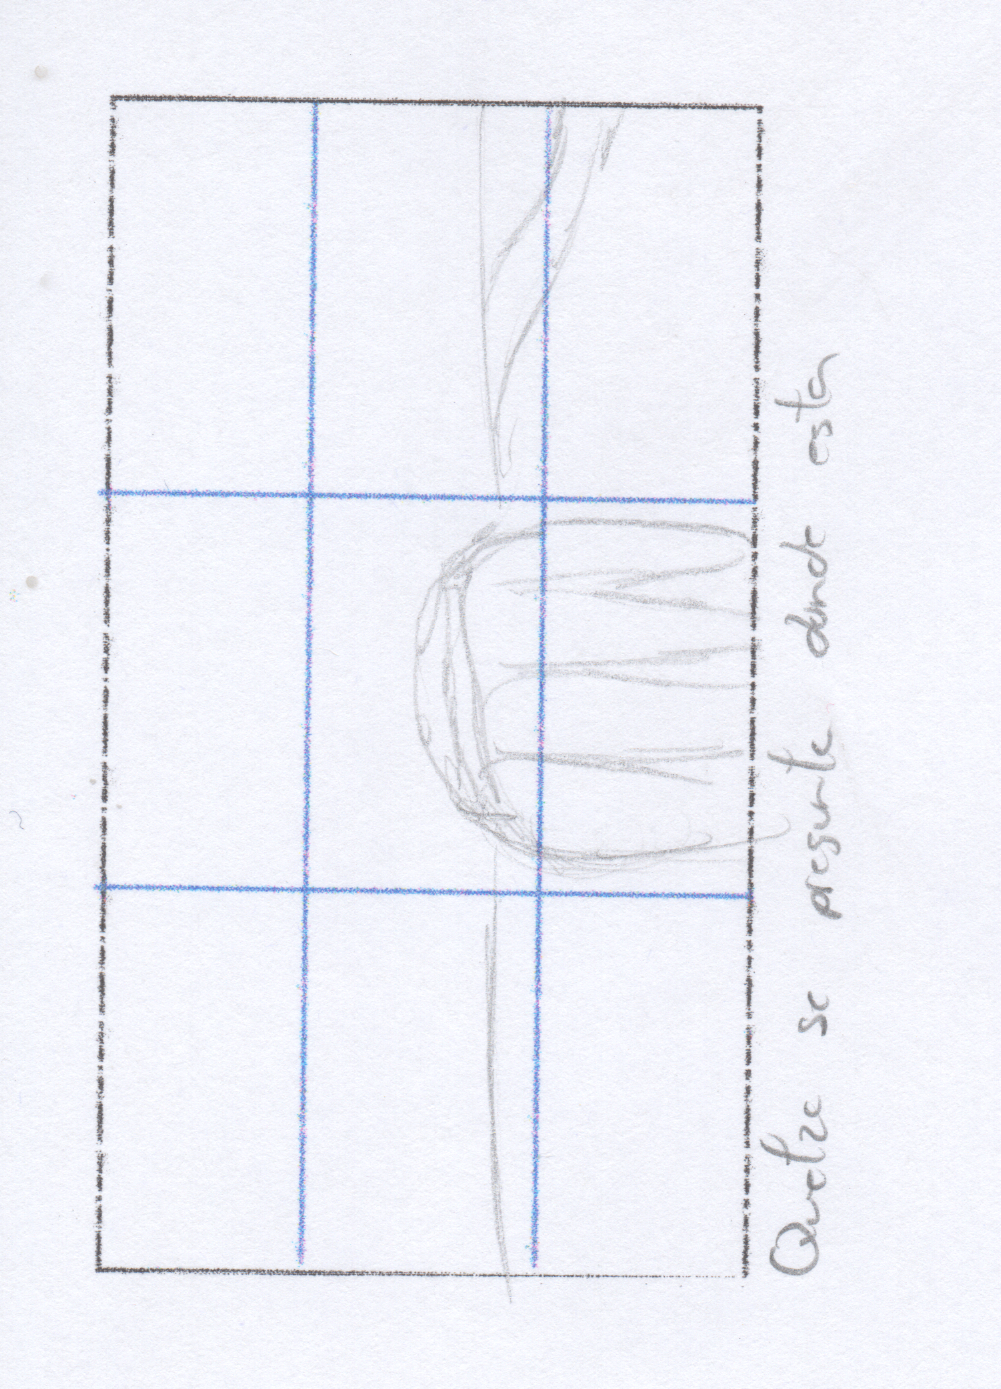 Quetze se pregunte donde esta